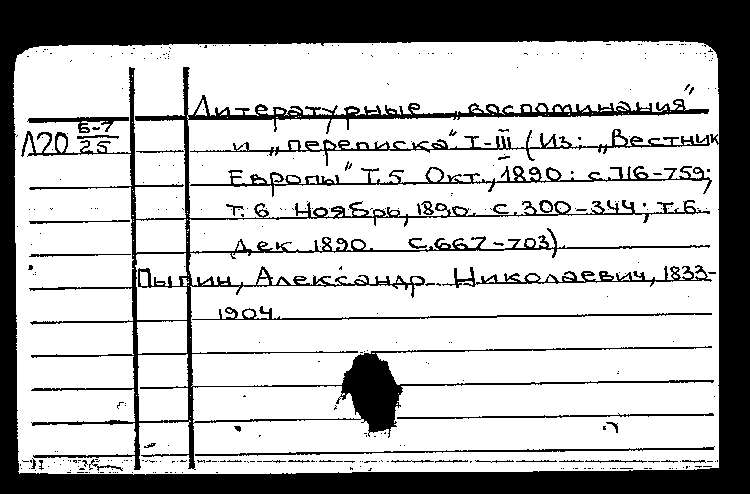 Литературные „воспоминания"
Л20 Б-7/25 и „переписка". I-III (Из: „Вестник
Европы" Т.5 Окт., 1890: с.716-759;
т.6 Ноябрь, 1890. с.300-344; т.6.
Дек 1890. С.667-703).
Пыпин, Александр Николаевич, 1833-
1904.